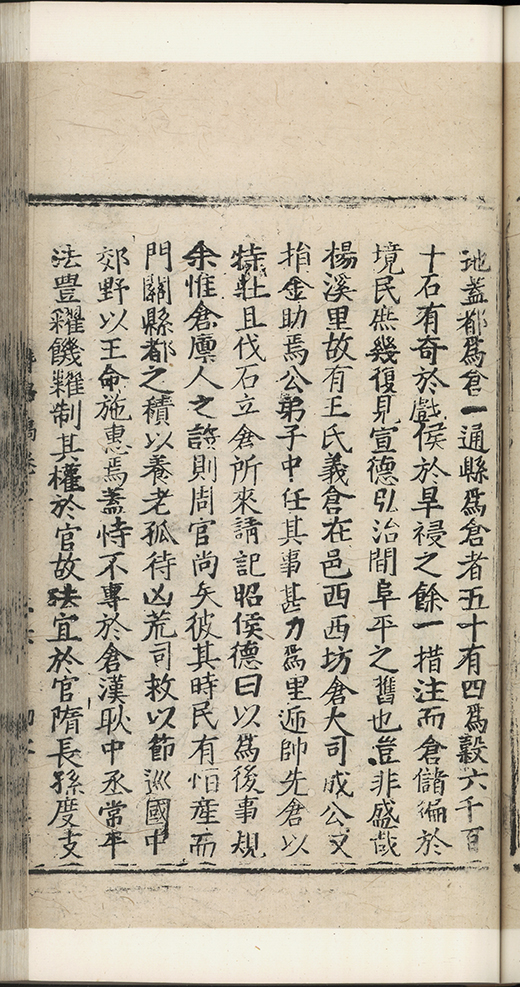 地蓋都爲倉一通縣爲倉者五十有四爲穀六千百
十石有奇於戲侯於旱祲之餘一措注而倉儲徧於
境民庶幾復見宣德弘治間阜平之舊也豈非盛哉
楊溪里故有王氏義倉在邑西西坊倉大司成公又
捐金助焉公弟子中任其事甚力爲里遞帥先倉以
特壯且伐石立倉所來請記昭侯德曰以爲後事規
余惟倉廩人之
則周官尚矣彼其時民有恒産而
門關縣都之積以養老孤待凶荒司救以節巡國中
郊野以王命施惠焉蓋恃不專於倉漢耿中丞常平
法豊糴饑糶制其權於官故法宜於官隋長孫度支